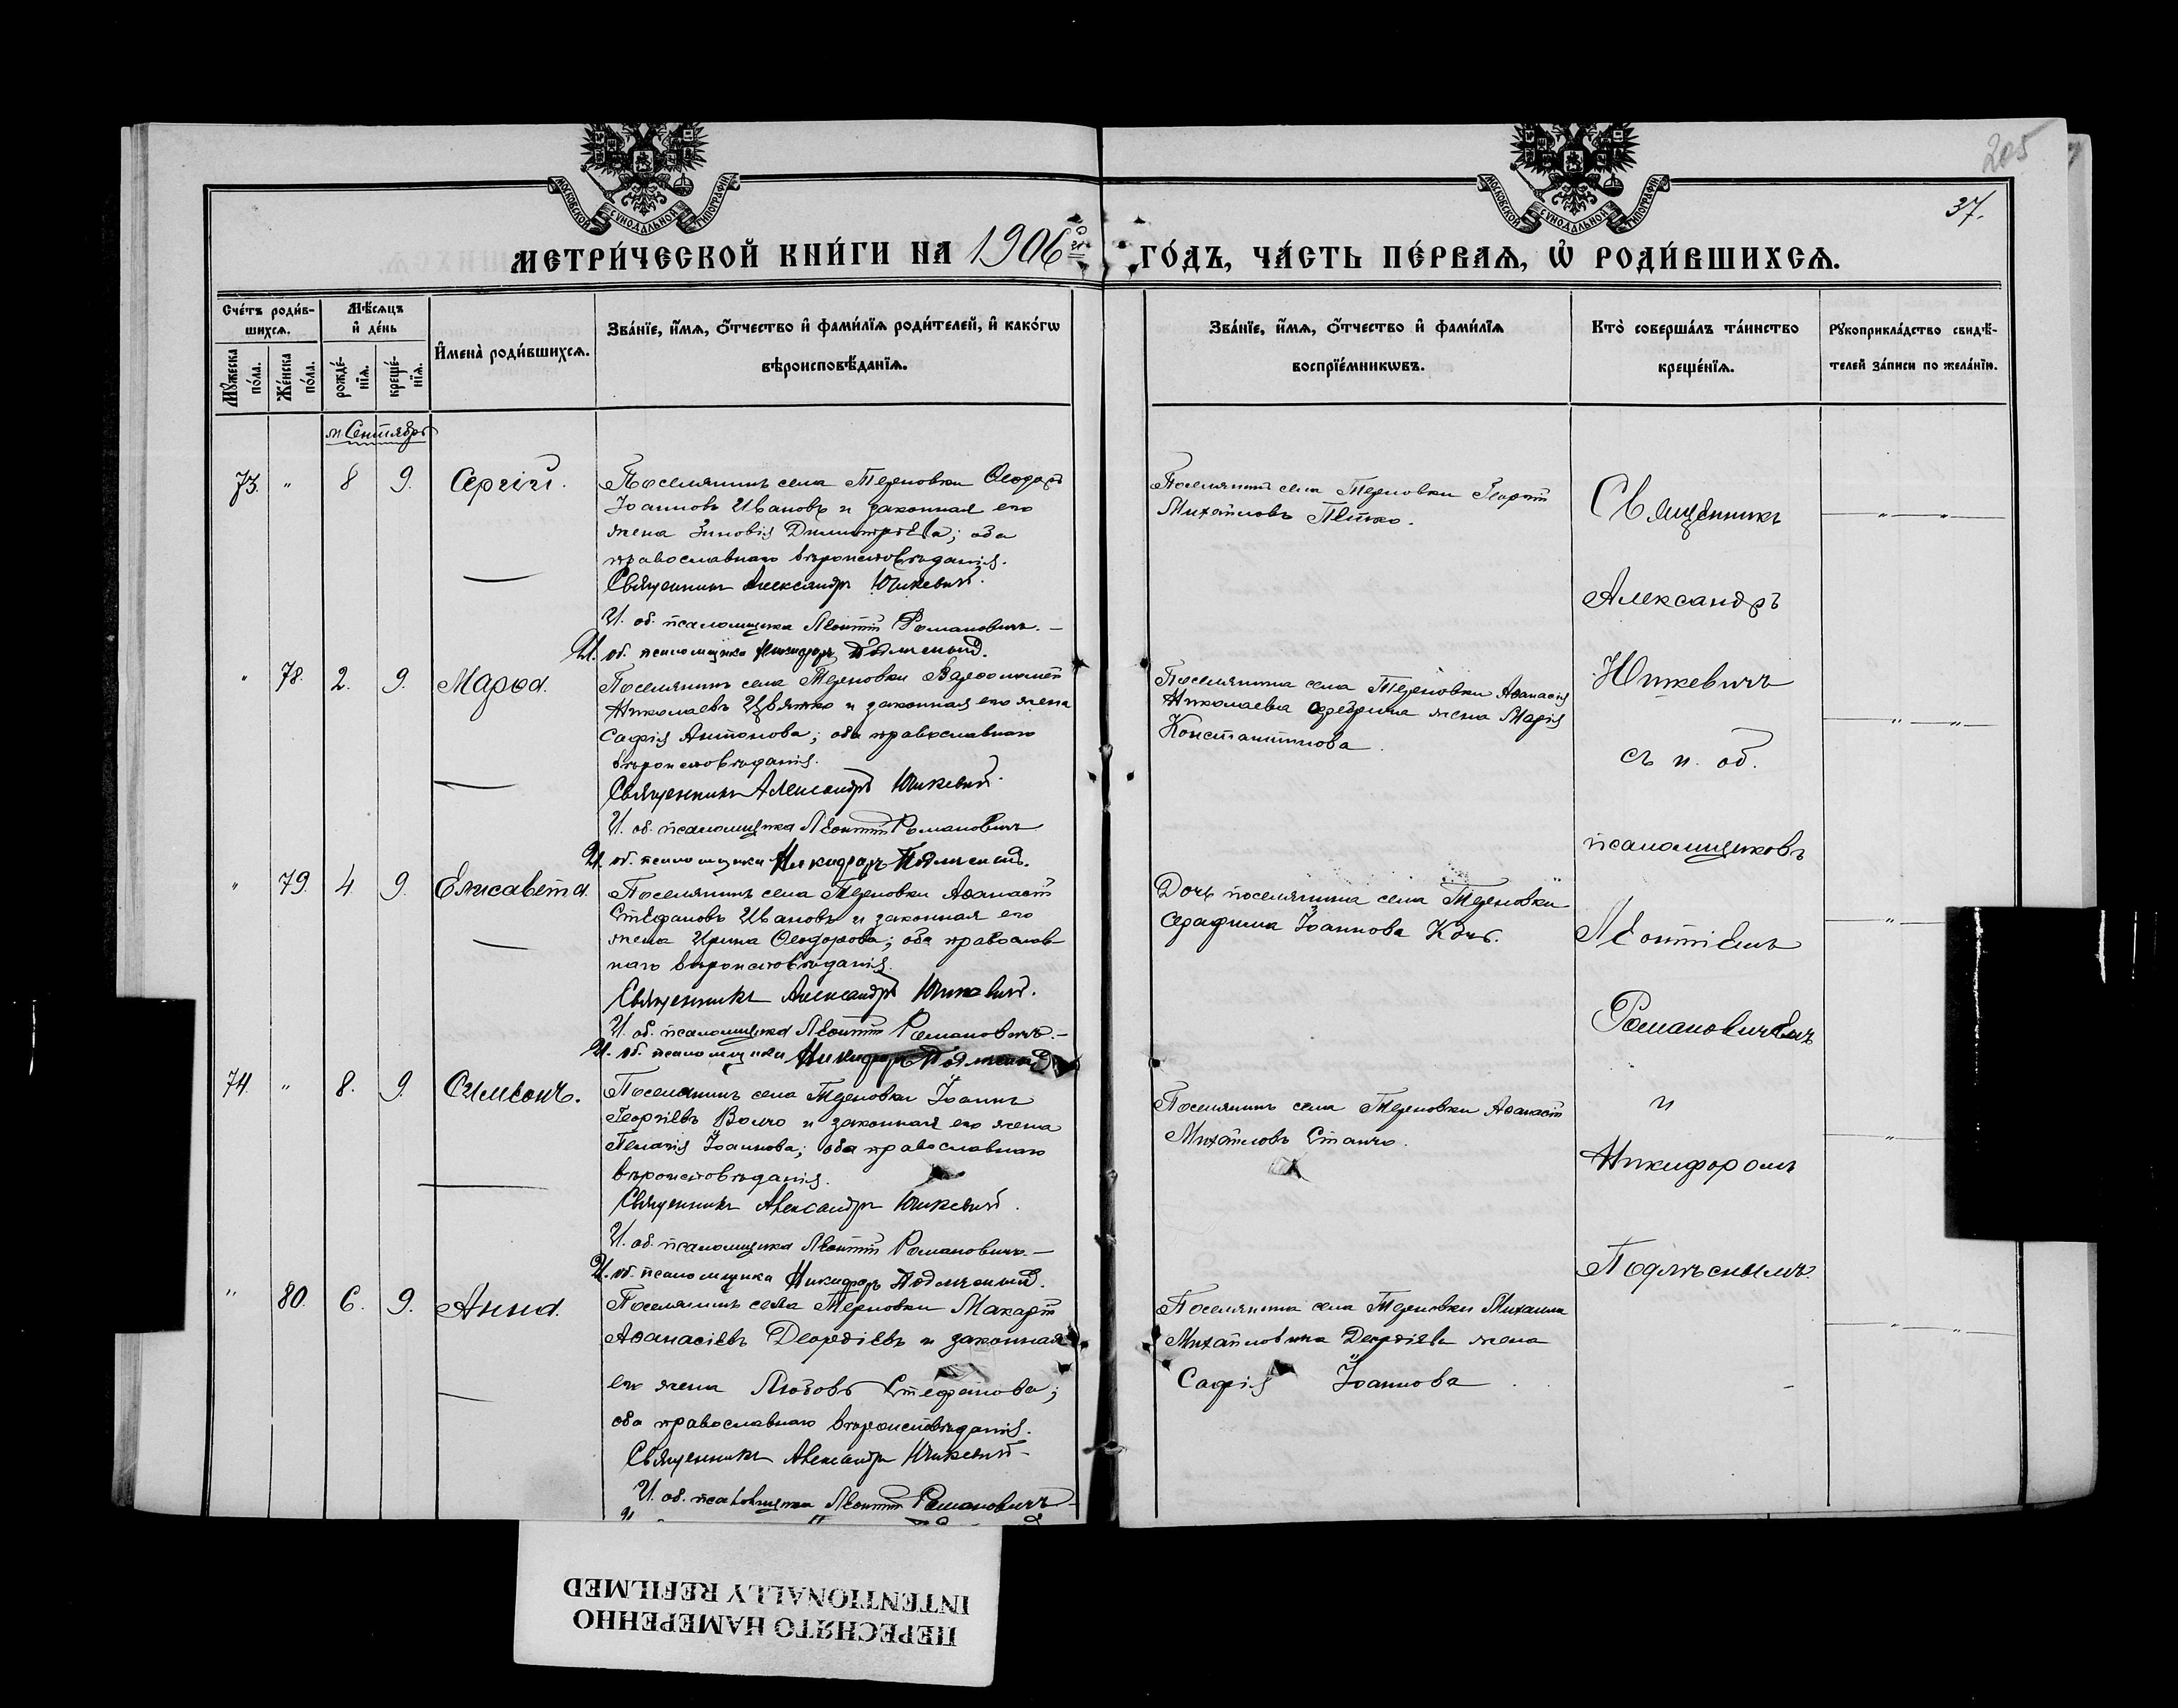 205
37.
МОСКОВСКОЙ СУНОДАЛЬНОЙ ТИПОГРАФІИ
МОСКОВСКОЙ СУНОДАЛЬНОЙ ТИПОГРАФІИ
МЕТРИ́ЧЕСКОЙ КНИ́ГИ НА 1906й
ГО́ДЪ, ЧА́СТЬ ПЕ́РВАѦ, Ѡ҆ РОДИ́ВШИХСѦ.
Сче́тъ роди́в-
шихсѧ.
Мѣ́сѧцъ
и҆ де́нь
Мꙋ́жеска по́ла.
Же́нска по́ла.
рожде́-нїѧ.
креще́-нїѧ.
И҆мена̀ роди́вшихсѧ.
Зва́нїе, и҆́мѧ, ѻ҆́тчество и҆ фами́лїѧ роди́телей, и҆ како́гѡ
вѣроисповѣ́данїѧ.
Зва́нїе, и҆́мѧ, ѻ҆́тчество и҆ фами́лїѧ
воспрїе́мникѡвъ.
Кто̀ соверша́лъ та́инство
креще́нїѧ.
Рꙋкоприкла́дство свидѣ́-
телей за́писи по жела́нїю.
м. Сентябрь
73. " 8 9. Сергій.
Поселянинъ села Терновки Ѳеодоръ
Іоанновъ Ивановъ и законная его
жена Зиновія Димитріева; оба
православнаго вѣроисповѣданія.
Священникъ Александръ Юшкевичъ.
И. об. псаломщика Леонтій Романовичъ.
И. об. псаломщика Никифоръ Подлѣсный.
Поселянинъ села Терновки Георгій
Михайловъ Петко.
" 78. 2. 9. Марѳа.
Поселянинъ села Терновки Варѳоломей
Николаевъ Цвятко и законная его жена
Софія Антонова; оба православнаго
вѣроисповѣданія.
Священникъ Александръ Юшкевичъ.
И. об. псаломщика Леонтій Романовичъ
И. об. псаломщика Никифоръ Подлѣсный.
Поселянина села Терновки Аѳанасія
Николаева жена Марія
Константинова.
" 79. 4. 9. Елисавета.
Поселянинъ села Терновки Аѳанасій
Стефановъ Ивановъ и законная его
жена Ирина Ѳеодорова; оба православ-
наго вѣроисповѣданія.
Священникъ Александръ Юшкевичъ.
И. об. псаломщика Леонтій Романовичъ.
И. об. псаломщика Никифоръ Подлѣсный
Дочь поселянина села Терновки
Серафима Іоаннова
74. " 8. 9. Симеонъ.
Поселянинъ села Терновки Іоаннъ
Георгіевъ Волчо и законная его жена
Пелагія Іоаннова; оба православнаго
вѣроисповѣданія.
Священникъ Александръ Юшкевичъ.
И. об. псаломщика Леонтій Романовичъ.
И. об. псаломщика Никифоръ Подлѣсный.
Поселянинъ села Терновки Аѳанасій
Михайловъ Станчо.
" 80. 6. 9. Анна.
Поселянинъ села Терновки Макарій
Аѳанасіевъ Деордіевъ и законная
его жена Любовь Стефанова;
оба православнаго вѣроисповѣданія.
Священникъ Александръ Юшкевичъ
И. об. псаломщика Леонтій Романовичъ
Поселянина села Терновки Михаила
Михайловича Деордіева жена
Софія Іоаннова
Священникъ
Александръ
Юшкевичъ
съ и. об.
псаломщиковъ
Леонтіемъ
Романовичемъ
и
Никифоромъ
Подлѣснымъ.
ПЕРЕСНЯТО НАМЕРЕННО
INTENTIONALLY REFILMED